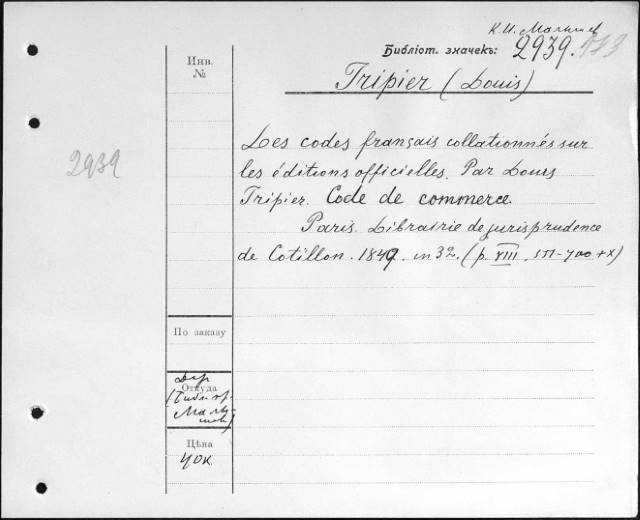 К.И. Малышев
Библіот. значекъ: 2939.
Инв. №
Tripier (Louis)
2939
Les codes français collationnés sur
les éditions officielles. Par Louis
Tripier. Code de commerce.
Paris. Librairie de jurisprudence
de Cotillon. 1849. in 32. (p. VIII, 511-700 + X)
По заказу
Откуда
Дар
(Библ. пр.
Малы-
шев)
Цѣна
40к